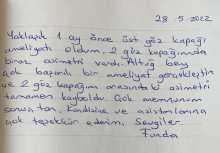 28.5.2022
Yaklaşık 1 ay önce üst göz kapağı
ameliyatı oldum. 2 göz kapağımda
biraz asimetri vardı. Altuğ bey
çok başarılı bir ameliyat gerçekleştirdi
ve 2 göz kapağım arasındaki asimetri
tamamen kayboldu. Çok memnunum
sonuçtan. Kendisine ve asistanlarına
çok teşekkür ederim. Sevgiler
Funda